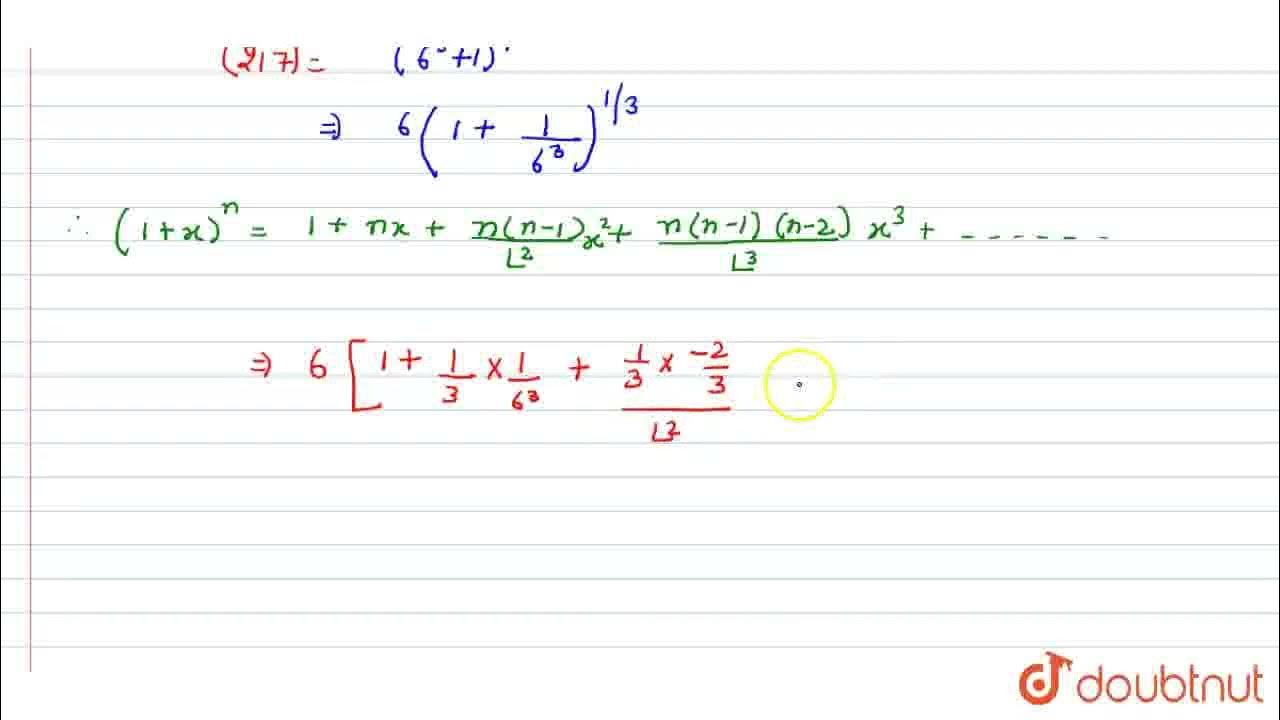 (217) = (6³+1)
⇒ 6(1 + 1/6³)^1/3
∴ (1+x)ⁿ = 1 + nx + n(n-1)/⌊2 x² + n(n-1)(n-2)/⌊3 x³ + ------
⇒ 6[1 + 1/3 × 1/6³ + 1/3 × -2/3 / ⌊2
doubtnut